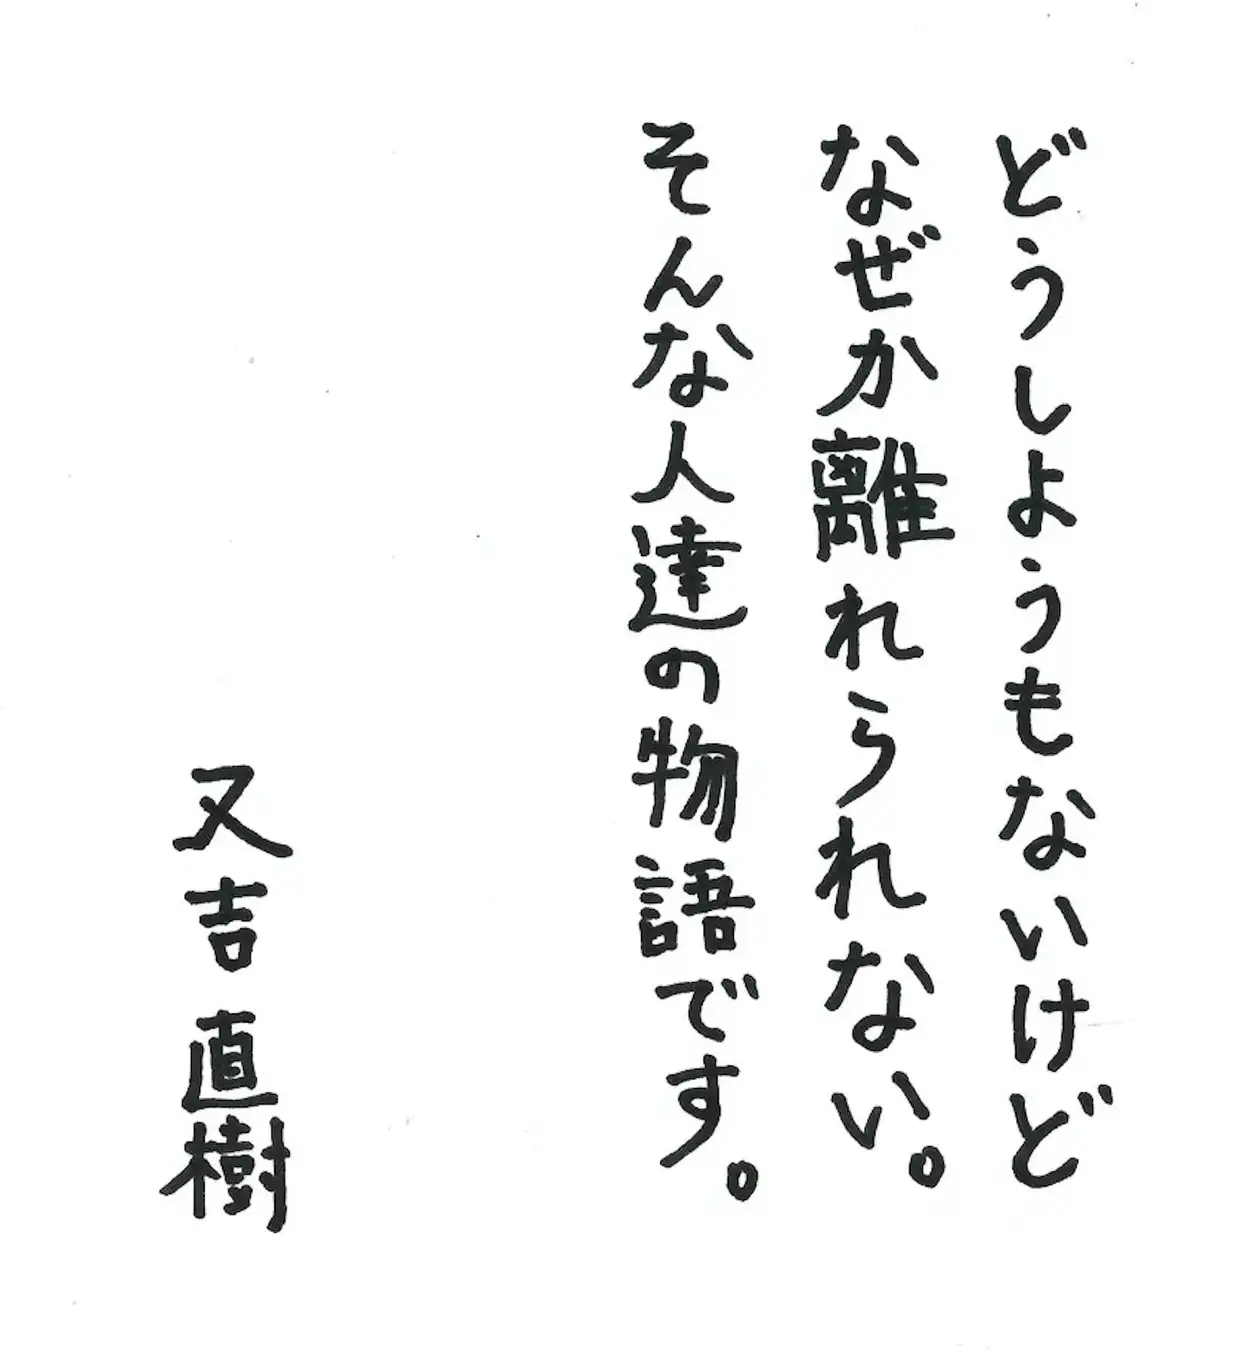 どうしようもないけど
なぜか離れられない。
そんな人達の物語です。
又吉直樹